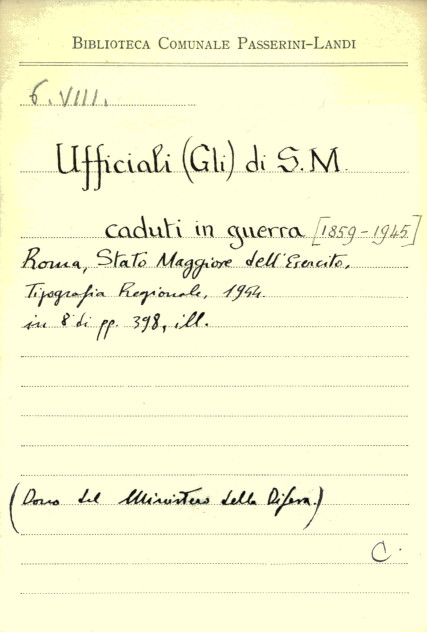 BIBLIOTECA COMUNALE PASSERINI-LANDI
6.VIII.
Ufficiali (Gli) di S.M.
caduti in guerra [1859-1945]
Roma, Stato Maggiore dell'Esercito,
Tipografia Regionale, 1954.
in 8° di pp. 398, ill.
(Dono del Ministero della Difesa.)
C.